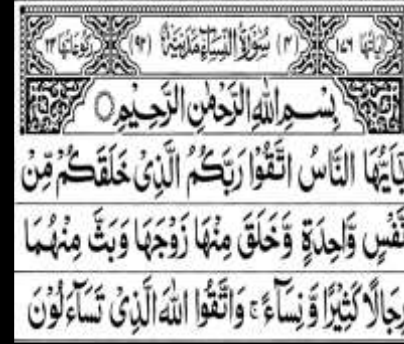 اٰیَاتُهَا ١٧٦ (٤) سُوْرَةُ النِّسَآءِ مَدَنِیَّةٌ (٩٢) رُكُوْعَاتُهَا ٢٤
بِسْمِ اللهِ الرَّحْمٰنِ الرَّحِیْمِ
یٰۤاَیُّهَا النَّاسُ اتَّقُوْا رَبَّكُمُ الَّذِیْ خَلَقَكُمْ مِّنْ
نَّفْسٍ وَّاحِدَةٍ وَّخَلَقَ مِنْهَا زَوْجَهَا وَبَثَّ مِنْهُمَا
رِجَالًا كَثِیْرًا وَّنِسَآءً ۚ وَاتَّقُوا اللهَ الَّذِیْ تَسَآءَلُوْنَ